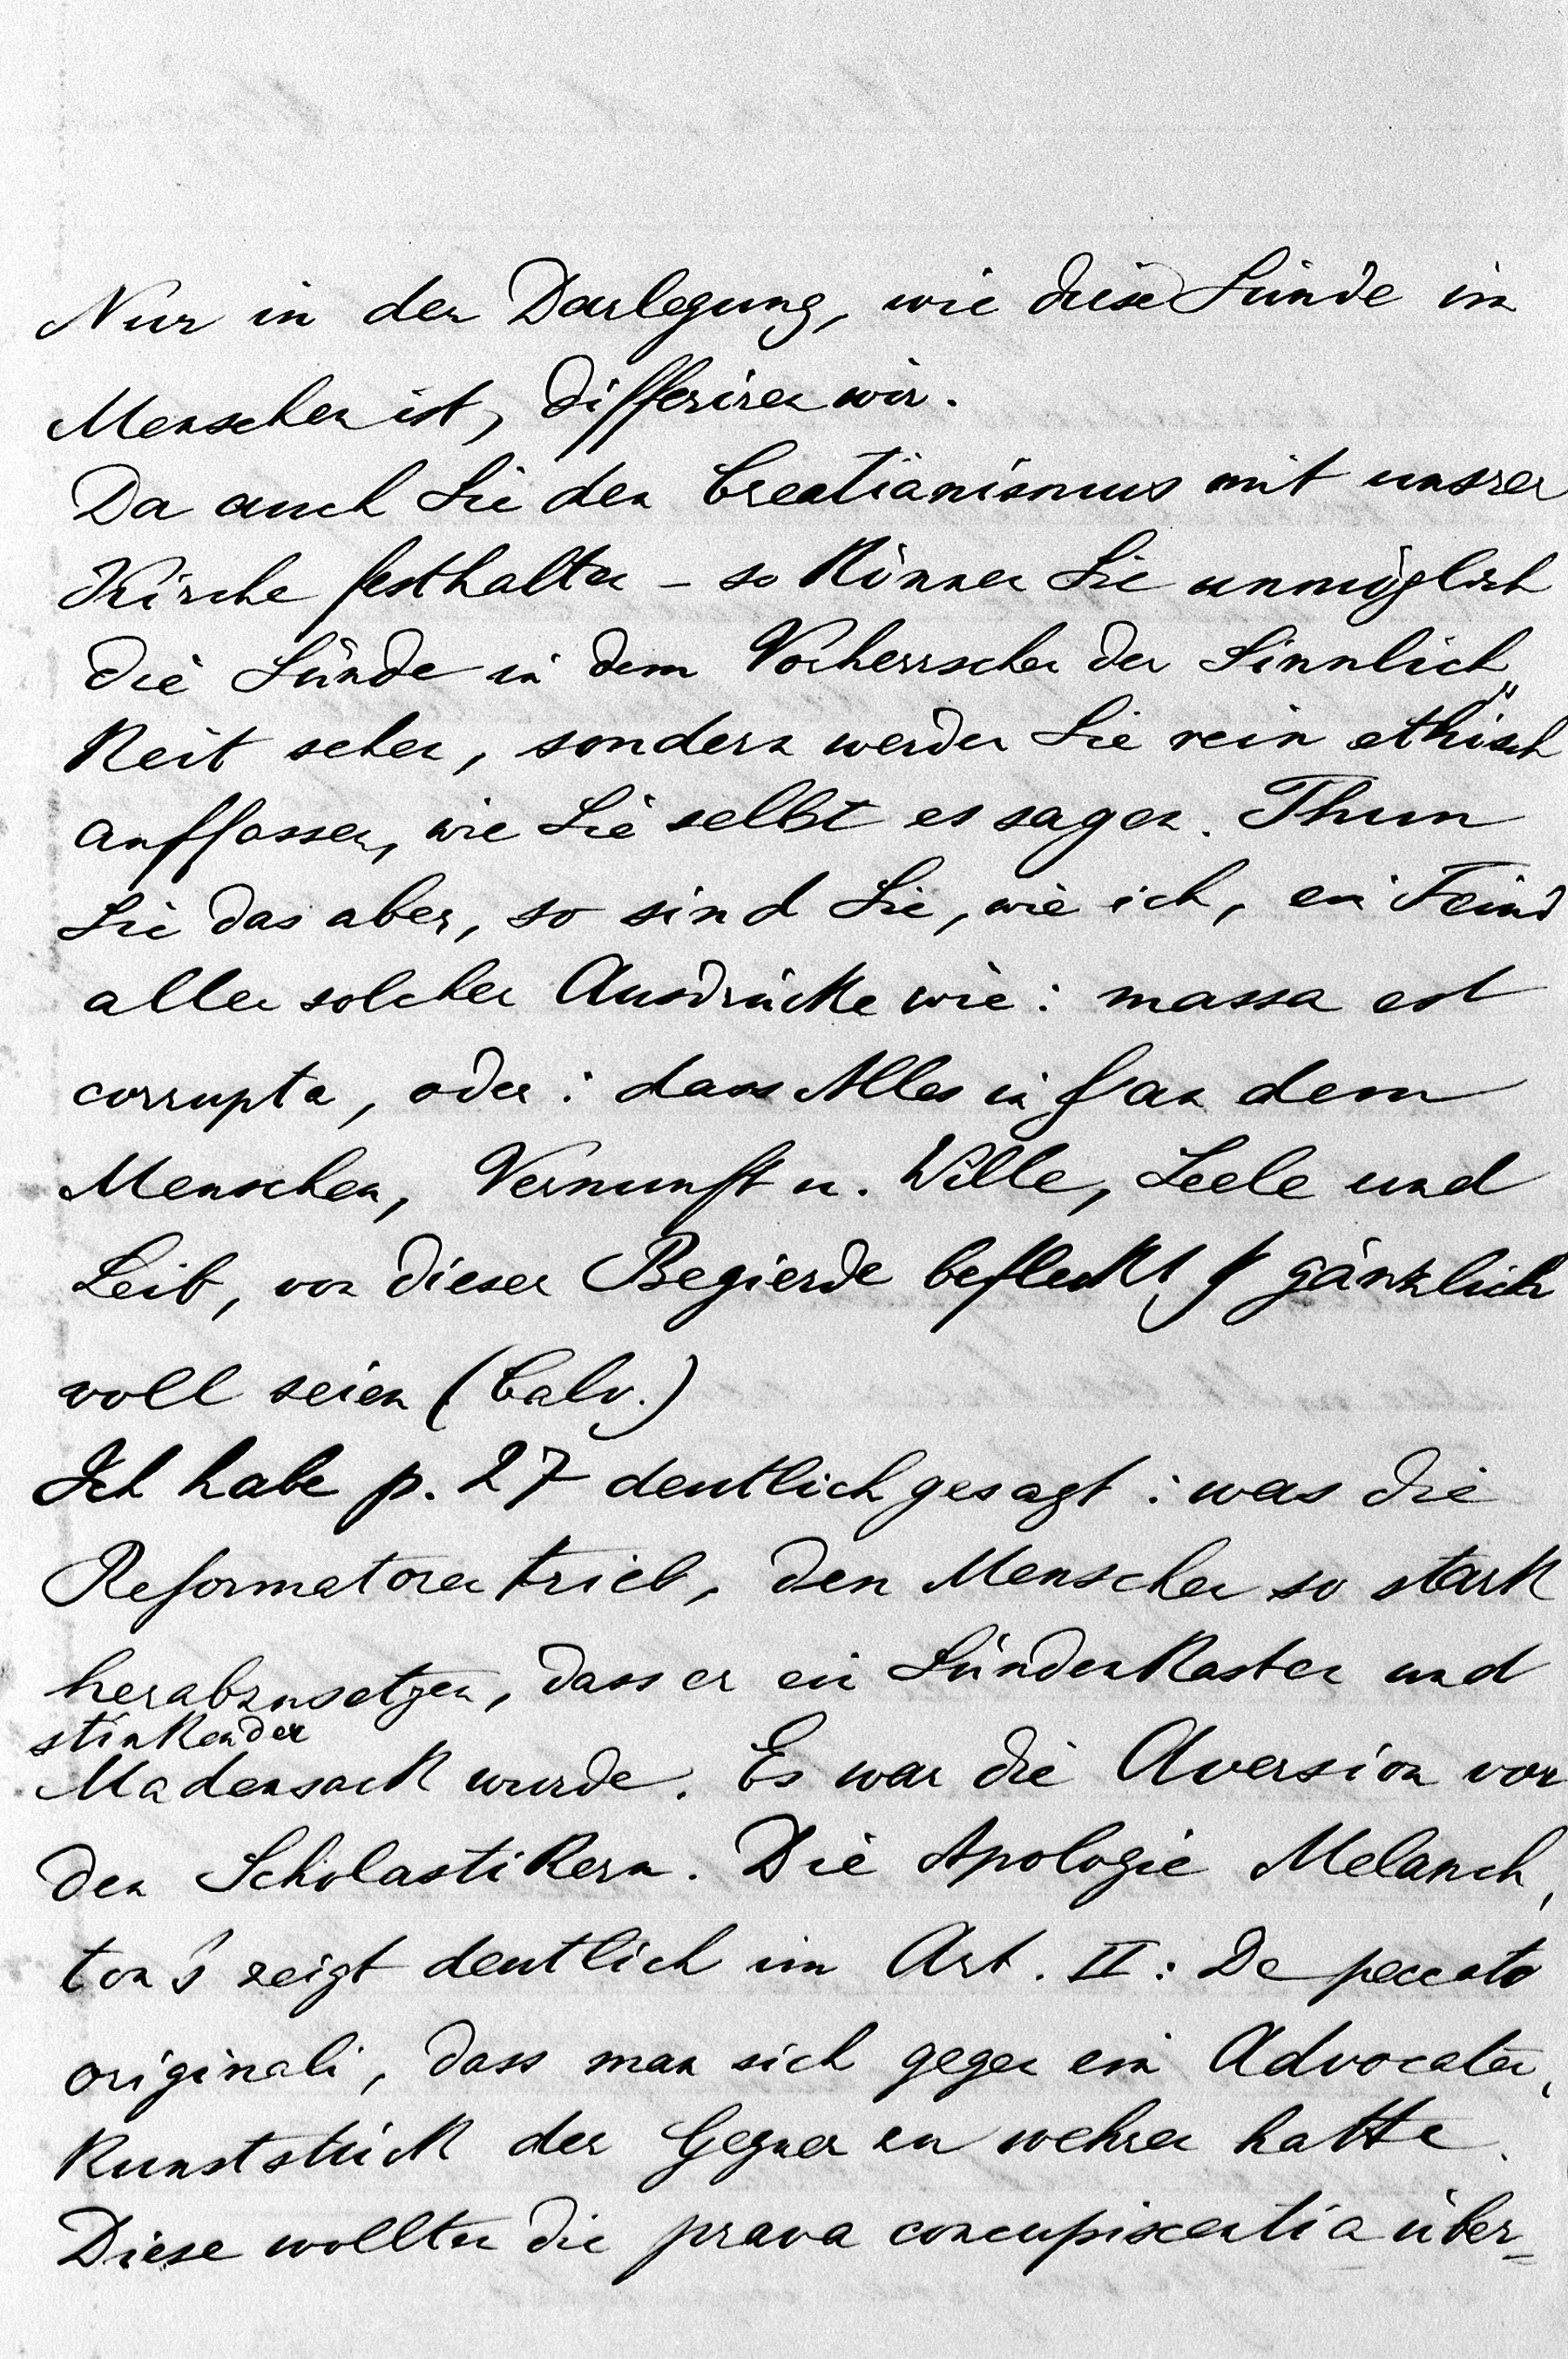 Nur in der Darlegung, wie diese Sünde im
Menschen ist, differiren wir.
Da auch Sie den Creatianismus mit unsrer
Kirche festhalten – so können Sie unmöglich
die Sünde in dem Vorherrschen der Sinnlich„
keit sehen, sondern werden Sie rein ethisch
auffassen, wie Sie selbst es sagen. Thun
Sie das aber, so sind Sie, wie ich, ein Feind
aller solcher Ausdrücke wie: massa est
corrupta, oder: dass Alles in f an dem
Menschen, Vernunft u. Wille, Seele und
Leib, von dieser Begierde befleckt, ja gänzlich
voll seien (Calv.)
Ich habe p. 27 deutlich gesagt: was die
Reformatoren trieb, den Menschen so stark
herabzusetzen, dass er ein Sündenkasten und
stinkender
Madensack wurde. Es war die Aversion vor
den Scholastikern. Die Apologie Melanch,
ton's zeigt deutlich im Art. II: De peccato
originali, dass man sich gegen ein Advocaten,
kunststück der Gegner zu wehren hatte.
Diese wollten die prava concupiscentia über=